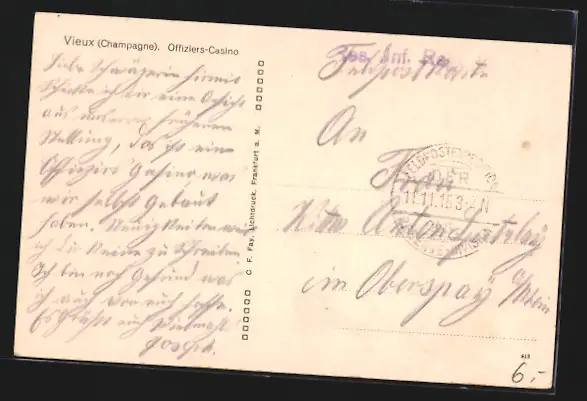 Vieux (Champagne). Offiziers-Casino
Liebe Schwägerin hiermit
schicke ich dir eine Ansicht
aus unserer früheren
Stellung, das ist ein
Offiziers Casino was
wir selbst gebaut
haben. Neuigkeiten
ich keine zu schreiben
Ich bin noch Gesund was
ich auch von euch hoffe.
Es Grüßt euch vielmals
Joseph.
C. F. Fay, Lichtdruck, Frankfurt a. M.
Res. Inf. Re
Feldpostkarte
An
Frau
Witwe Anton
im Oberspay a/Rhein
FELDPOSTEXPEDITION
DER
11.11.16 3-4 N
613
6,-